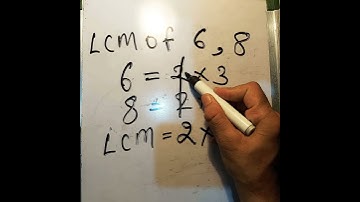 LCM of 6, 8
6 = 2 × 3
8 = 2
LCM = 2 ×